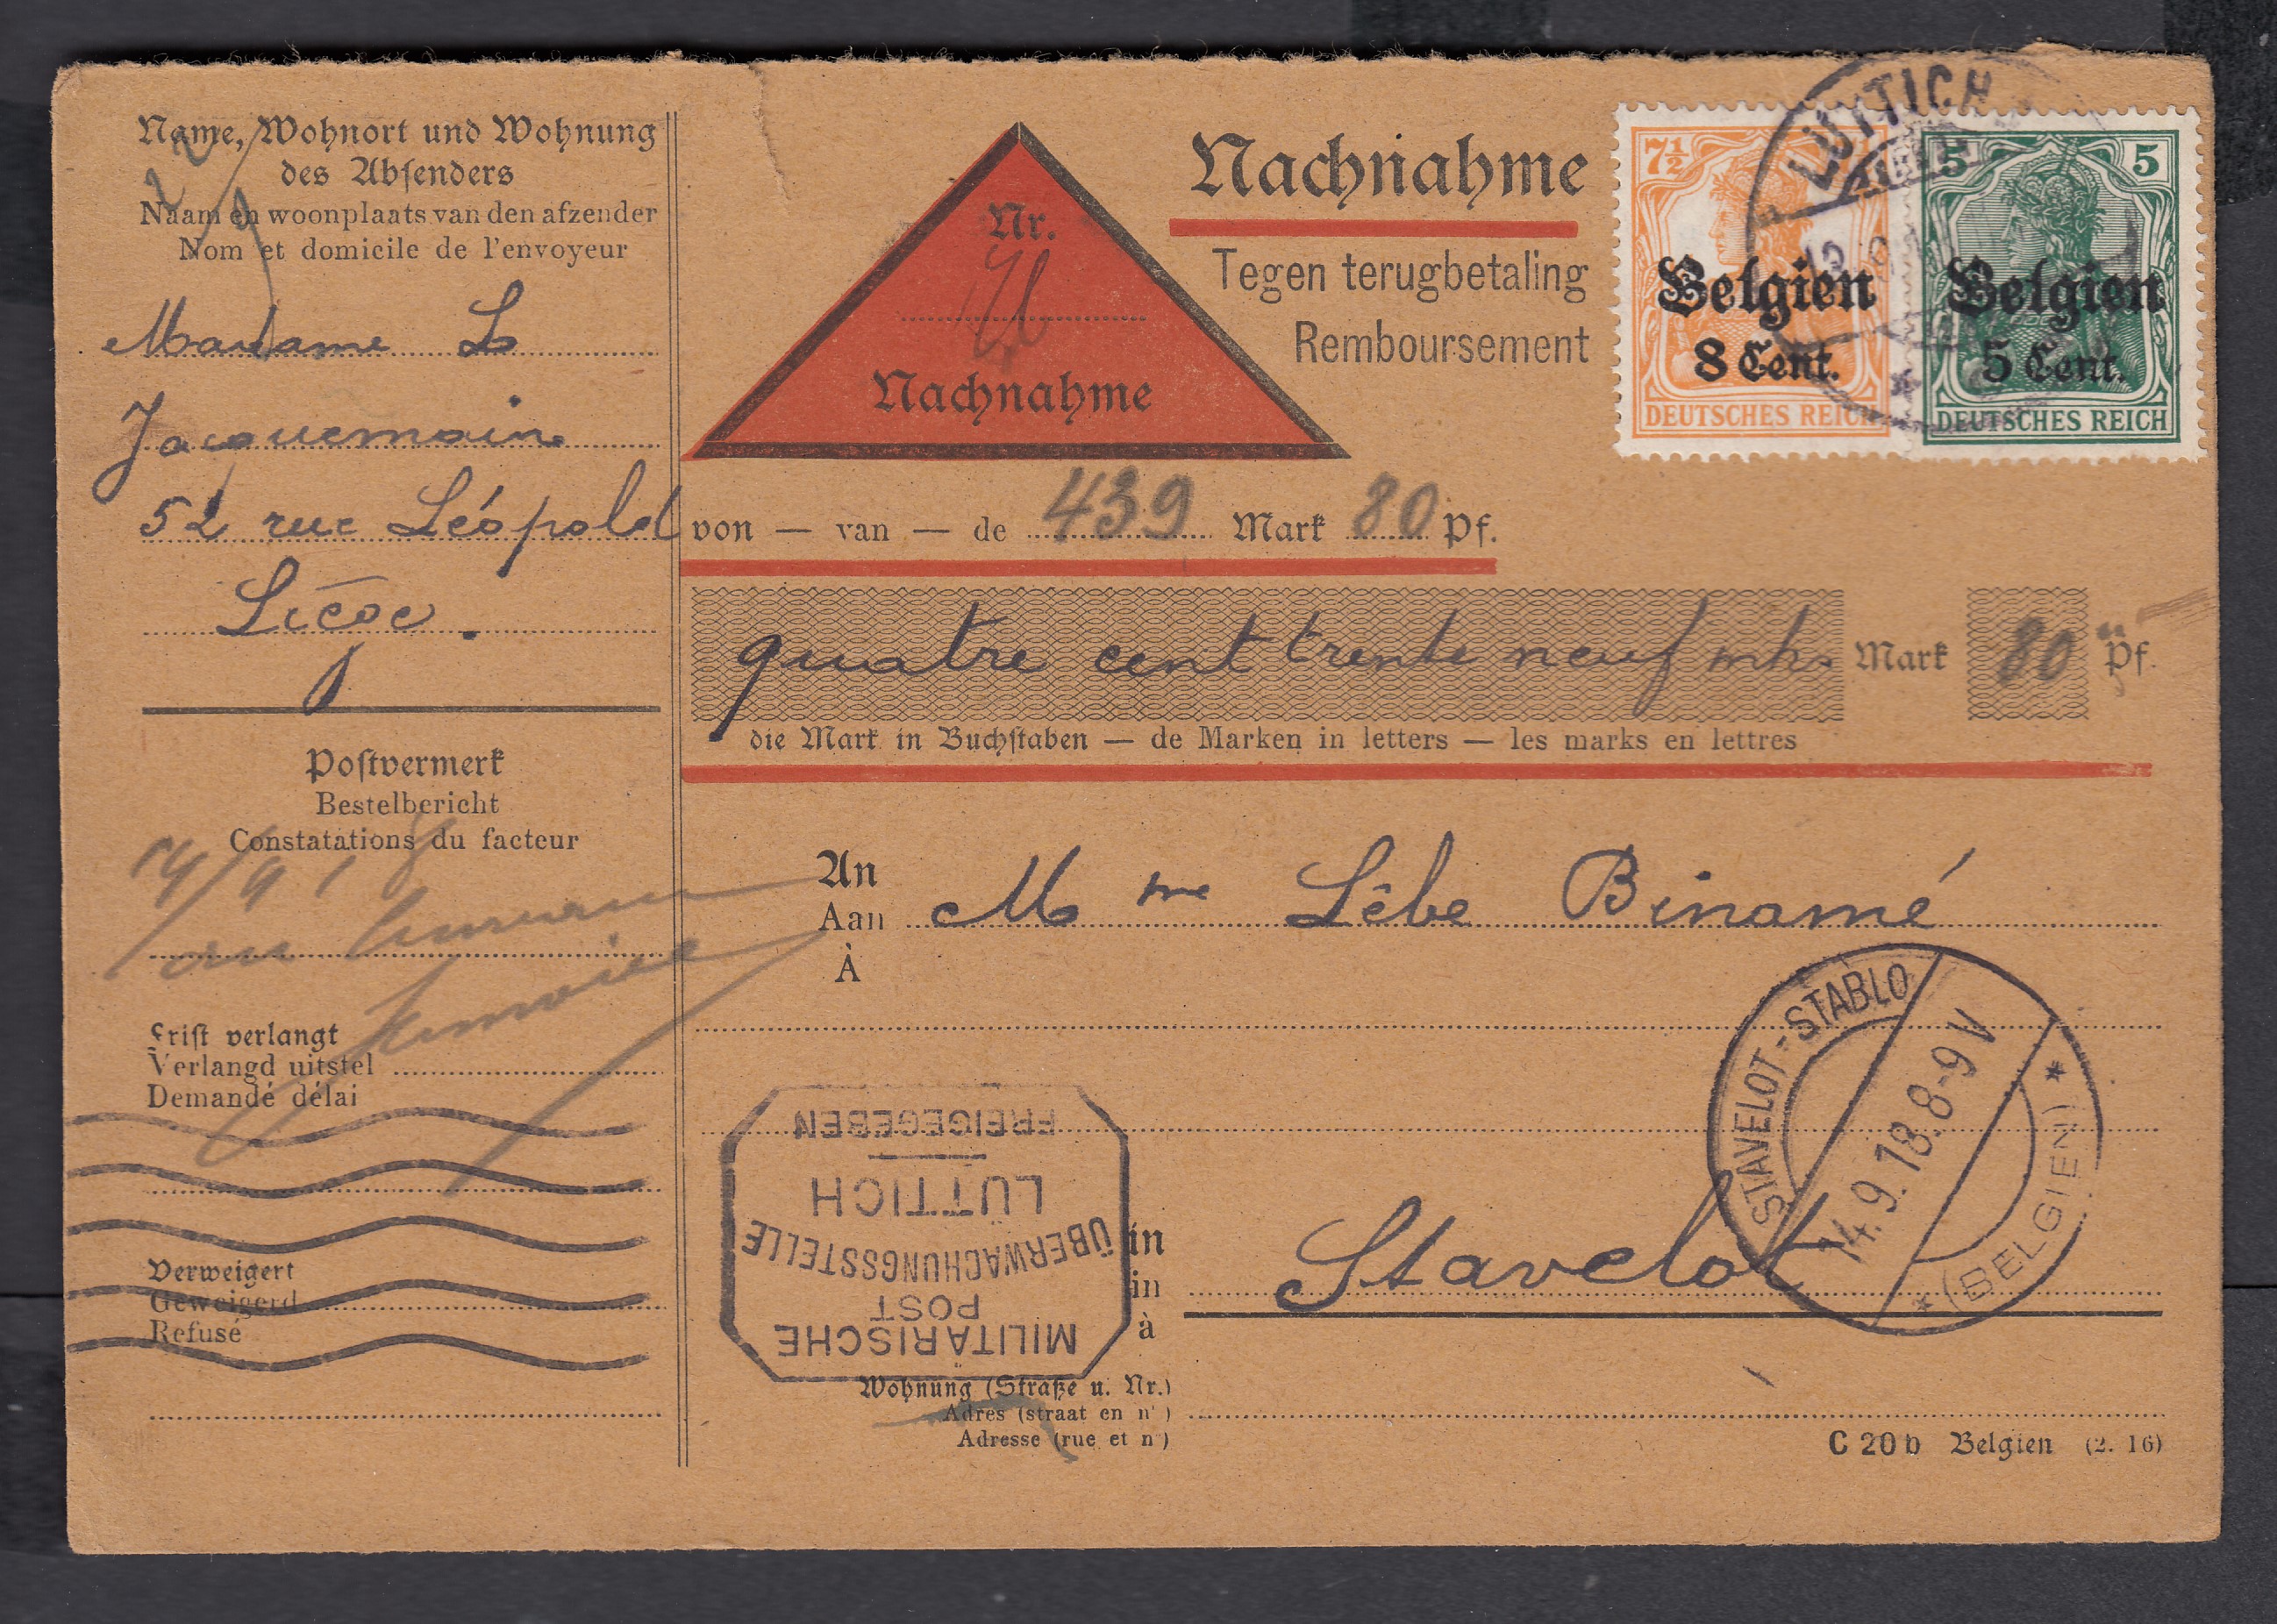 Name, Wohnort und Wohnung
des Absenders
Naam en woonplaats van den afzender
Nom et domicile de l'envoyeur
Madame L
Jacquemain
52 rue Léopold
Liége.
Postvermerk
Bestelbericht
Constatations du facteur
14/9 18
Frist verlangt
Verlangd uitstel
Demandé délai
Verweigert
Geweigerd
Refusé
Nr.
Nachnahme
Nachnahme
Tegen terugbetaling
Remboursement
7½
Belgien
8 Cent.
DEUTSCHES REICH
5 5
Belgien
5 Cent.
DEUTSCHES REICH
LÜTTICH
von — van — de 439 Mark 80 Pf.
quatre cent trente neuf mk. Mark 80 Pf.
die Mark in Buchstaben — de Marken in letters — les marks en lettres
An
Aan
À
Mme Lêbe Binamé
STAVELOT-STABLO
14.9.18.8-9 V
* (BELGIEN) *
MILITÄRISCHE
POST
ÜBERWACHUNGSSTELLE
LÜTTICH
FREIGEGEBEN
in
in
à
Stavelot
Wohnung (Straße u. Nr.)
Adres (straat en nr)
Adresse (rue et no)
C 20 b Belgien (2. 16)